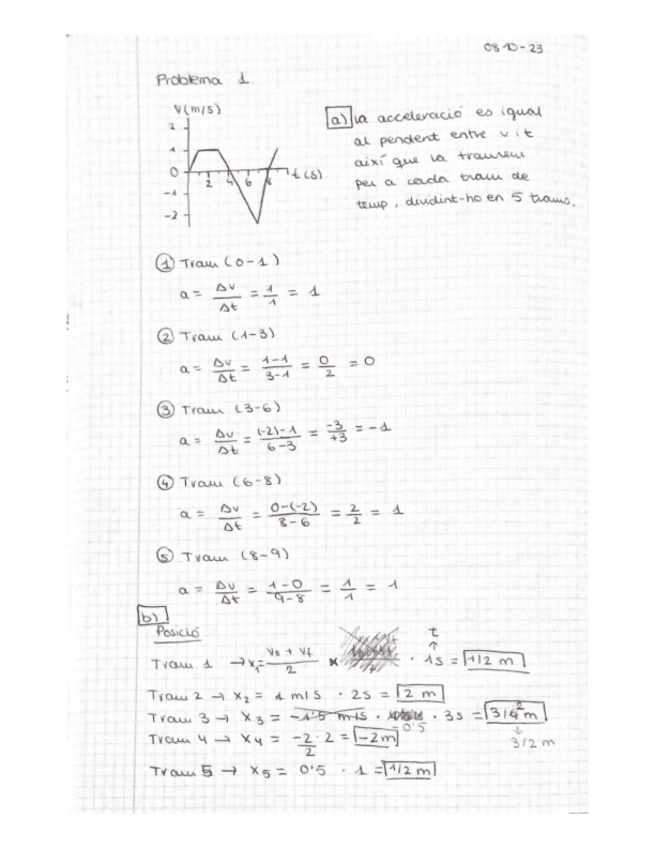 08-10-23
Problema 1.
V(m/s)
2
1
0
-1
-2
2 4 6 8 t(s)
a) la acceleració es igual
al pendent entre v i t
així que la traurem
per a cada tram de
temp, dividint-ho en 5 trams.
① Tram (0-1)
a = Δv/Δt = 1/1 = 1
② Tram (1-3)
a = Δv/Δt = 1-1/3-1 = 0/2 = 0
③ Tram (3-6)
a = Δv/Δt = (-2)-1/6-3 = -3/+3 = -1
④ Tram (6-8)
a = Δv/Δt = 0-(-2)/8-6 = 2/2 = 1
⑤ Tram (8-9)
a = Δv/Δt = 1-0/9-8 = 1/1 = 1
b)
Posició
t
↑
Tram 1 → x₁ = V0 + Vf/2 · 1s = 1/2 m
Tram 2 → x2 = 1 m/s · 2s = 2 m
Tram 3 → x3 = -1'5 m/s · 3s = 3/4 m
= 0'5
2
↓
3/2 m
Tram 4 → x4 = -2/2 · 2 = -2m
Tram 5 → x5 = 0'5 · 1 = 1/2 m